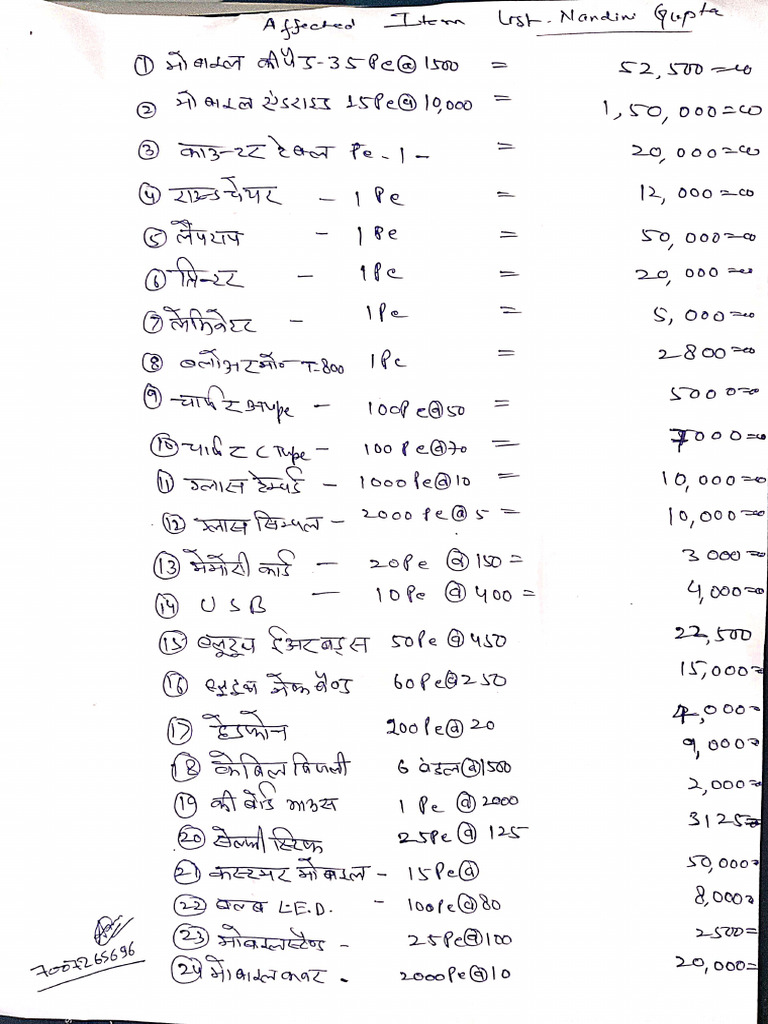 Affected Item List. Nandini Gupta
① मोबाइल कीपैड-35 Pc@1500 = 52,500=00
② मोबाइल एंडराइड 15Pc@10,000 = 1,50,000=00
③ काउन्टर टेबल Pc-1- = 20,000=00
④ राउन्ड चेयर - 1 Pc = 12,000=00
⑤ लैपटाप - 1 Pc = 50,000=00
⑥ प्रिन्टर - 1Pc = 20,000=00
⑦ लेमिनेटर - 1Pc = 5,000=00
⑧ ब्लोअर T-800 1Pc = 2800=00
⑨ चार्जर Type - 100Pc@50 = 5000=00
⑩ चार्जर C Type - 100 Pc@70 = 7000=00
⑪ ग्लास टेम्पर्ड - 1000Pc@10 = 10,000=00
⑫ ग्लास सिम्पल - 2000 Pc@5 = 10,000=00
⑬ मेमोरी कार्ड - 20Pc @150 = 3000=00
⑭ USB - 10Pc @400 = 4,000=00
⑮ ब्लूटूथ ईअरबड्स 50Pc@450 22,500
⑯ नेकबैण्ड 60Pc@250 15,000=
⑰ हेडफोन 200Pc@20 4,000=
⑱ केबिल बिजली 6 बंडल@1500 9,000=
⑲ की बोर्ड माउस 1 Pc @2000 2,000=
⑳ सेल्फी स्टिक 25Pc@ 125 3125=
㉑ कस्टमर मोबाइल - 15Pc@ 50,000=
㉒ बल्ब L.E.D. - 100Pc@80 8,000=
㉓ मोबाइल स्टैण्ड - 25Pc@100 2500=
㉔ मोबाइल कवर . 2000Pc@10 20,000=
7007265696